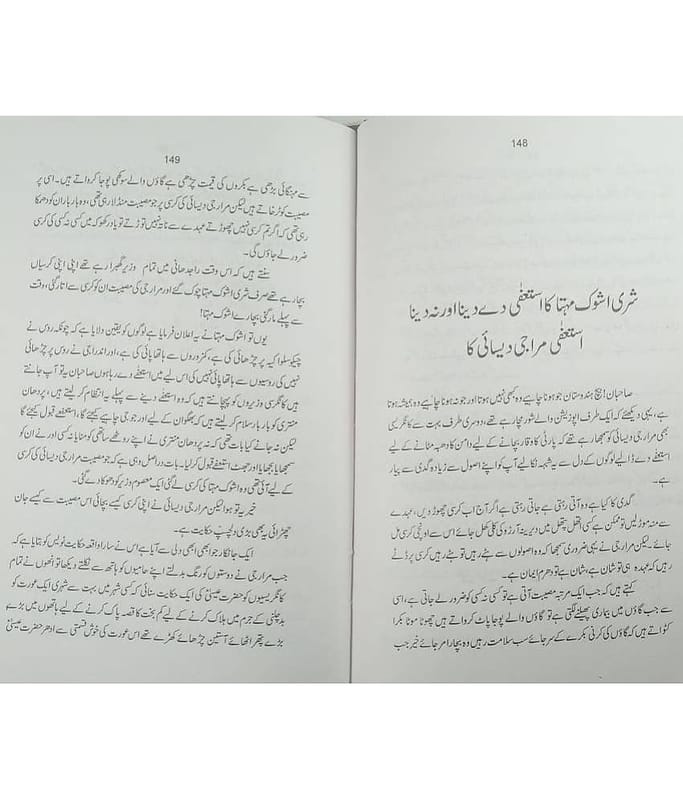 148
شری اشوک مہتا کا استعفٰی دے دینا اور نہ دینا
استعفٰی مراجی دیسائی کا
صاحبان! سچ ہندوستان جو ہونا چاہیے وہ کبھی نہیں ہوتا اور جو نہ ہونا چاہیے وہ ہمیشہ ہوتا
ہے، یہی دیکھئے کہ ایک طرف اپوزیشن والے شور مچا رہے تھے، دوسری طرف بہت سے کانگریسی
بھی مرارجی دیسائی کو سمجھا رہے تھے کہ پارٹی کا وقار بچانے کے لیے دامن کا دھبہ مٹانے کے لیے
استعفے دے ڈالیے لوگوں کے دل سے یہ شبہہ نکالیے آپ کو اپنے اصول سے زیادہ گدی سے پیار
ہے۔
گدی کا کیا ہے وہ آتی رہتی ہے جاتی رہتی ہے اگر آج اب کرسی چھوڑ دیں، عہدے
سے منہ موڑ لیں تو ممکن ہے کسی اتھل پتھل میں دیرینہ آرزو کی کلی کھل جائے اس سے اونچی کرسی مل
جائے۔ لیکن مرارجی نے یہی ضروری سمجھا کہ وہ اصولوں سے ہٹے رہیں تو ہٹے رہیں کرسی پر ڈٹے
رہیں کہ عہدہ ہی تو شان ہے، شان ہے تو دھرم ایمان ہے۔
کہتے ہیں کہ جب ایک مرتبہ مصیبت آتی ہے تو کسی نہ کسی کو ضرور لے جاتی ہے، اسی
سے جب گاؤں میں بیماری پھیلنے لگتی ہے تو گاؤں والے پوجا پاٹ کرواتے ہیں چھوٹا موٹا بکرا
کٹواتے ہیں کہ گاؤں کی کرنی بکرے کے سر جائے سب سلامت رہیں وہ بیچارا مر جائے خیر جب
149
سے مہنگائی بڑھی ہے بکروں کی قیمت چڑھی ہے گاؤں والے سوکھی پوجا کرواتے ہیں۔ اسی پر
مصیبت کو ٹرخاتے ہیں لیکن مرارجی دیسائی کی کرسی پر جو مصیبت منڈلا رہی تھی، وہ بار بار ان کو دھمکا
رہی تھی کہ اگر تم کرسی نہیں چھوڑتے عہدے سے ناتا نہیں توڑتے تو یاد رکھو کہ میں کسی نہ کسی کی کرسی
ضرور لے جاؤں گی۔
سنتے ہیں کہ اس وقت راجدھانی میں تمام وزیر گھبرا رہے تھے اپنی اپنی کرسیاں
بچا رہے تھے صرف شری اشوک مہتا چوک گئے اور مرارجی کی مصیبت ان کو کرسی سے اتار گئی، وقت
سے پہلے مار گئی بچارے اشوک مہتا!
یوں تو اشوک مہتا نے یہ اعلان فرمایا ہے لوگوں کو یقین دلایا ہے کہ چونکہ روس نے
چیکوسلواکیہ پر چڑھائی کی ہے، کمزوروں سے ہاتھا پائی کی ہے، اور اندراجی نے روس پر چڑھائی
نہیں کی روسیوں سے ہاتھا پائی نہیں کی اس لیے میں استعفے دے رہا ہوں صاحبان یہ تو آپ جانتے
ہیں کانگرسی وزیروں کو پہچانتے ہیں کہ وہ استعفے دینے سے پہلے یہ انتظام کر لیتے ہیں، پردھان
منتری کو بار بار سلام کر لیتے ہیں کہ بھگوان کے لیے اور جو جی چاہے کیجئے گا، استعفے قبول کیجئے گا
لیکن نہ جانے کیا بات تھی کہ نہ پردھان منتری نے اپنے روٹھے ساتھی کو منایا نہ کسی اور نے ان کو
سمجھایا بجھایا اور جھٹ استعفے قبول کر لیا۔ بات دراصل وہی ہے کہ جو مصیبت مرارجی دیسائی کی کرسی
کے لیے آئی تھی وہ اشوک مہتا کی کرسی لے گئی ایک معصوم وزیر کو دھوکا دے گئی۔
خیر یہ تو ہوا لیکن مرارجی دیسائی نے اپنی کرسی کیسے بچائی اس مصیبت سے کیسے جان
چھڑائی یہ بھی بڑی دلچسپ حکایت ہے۔
ایک جانکار جو ابھی ابھی دلی سے آیا ہے اس نے سارا واقعہ حکایت نویس کو بتایا ہے کہ
جب مرارجی نے دوستوں کو رنگ بدلتے اپنے حامیوں کو ہاتھ سے نکلتے دیکھا تو انھوں نے تمام
کانگریسیوں کو حضرت عیسیٰ کی ایک حکایت سنائی کہ کسی شہر میں بہت سے شہری ایک عورت کو
بدچلنی کے جرم میں ہلاک کرنے کے لیے کم بخت کا قصہ پاک کرنے کے لیے ہاتھوں میں بڑے
بڑے پتھر اٹھائے آستین چڑھائے کھڑے تھے اس عورت کی خوش قسمتی سے ادھر حضرت عیسیٰ